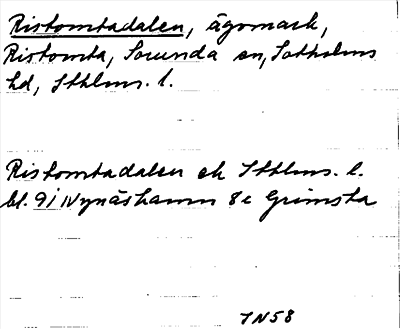 Ristomtadalen, ägomark,
Ristomta, Sorunda sn, Sotholms
hd, Sthlms. l.
Ristomtadalen ek Sthlms. l.
bl. 9i Nynäshamn 8c Grimsta
IN58